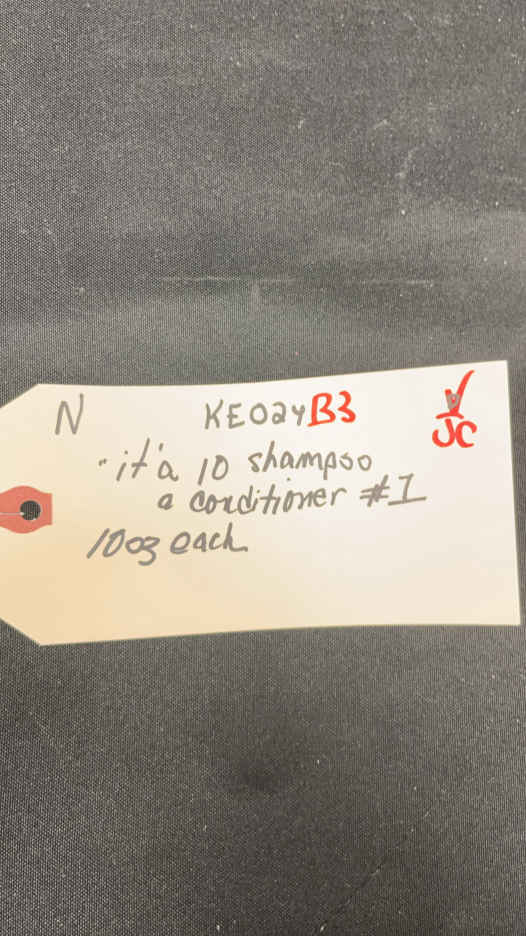 N KE024B3 JC
"it'a 10 shampoo
a conditioner #1
10oz each